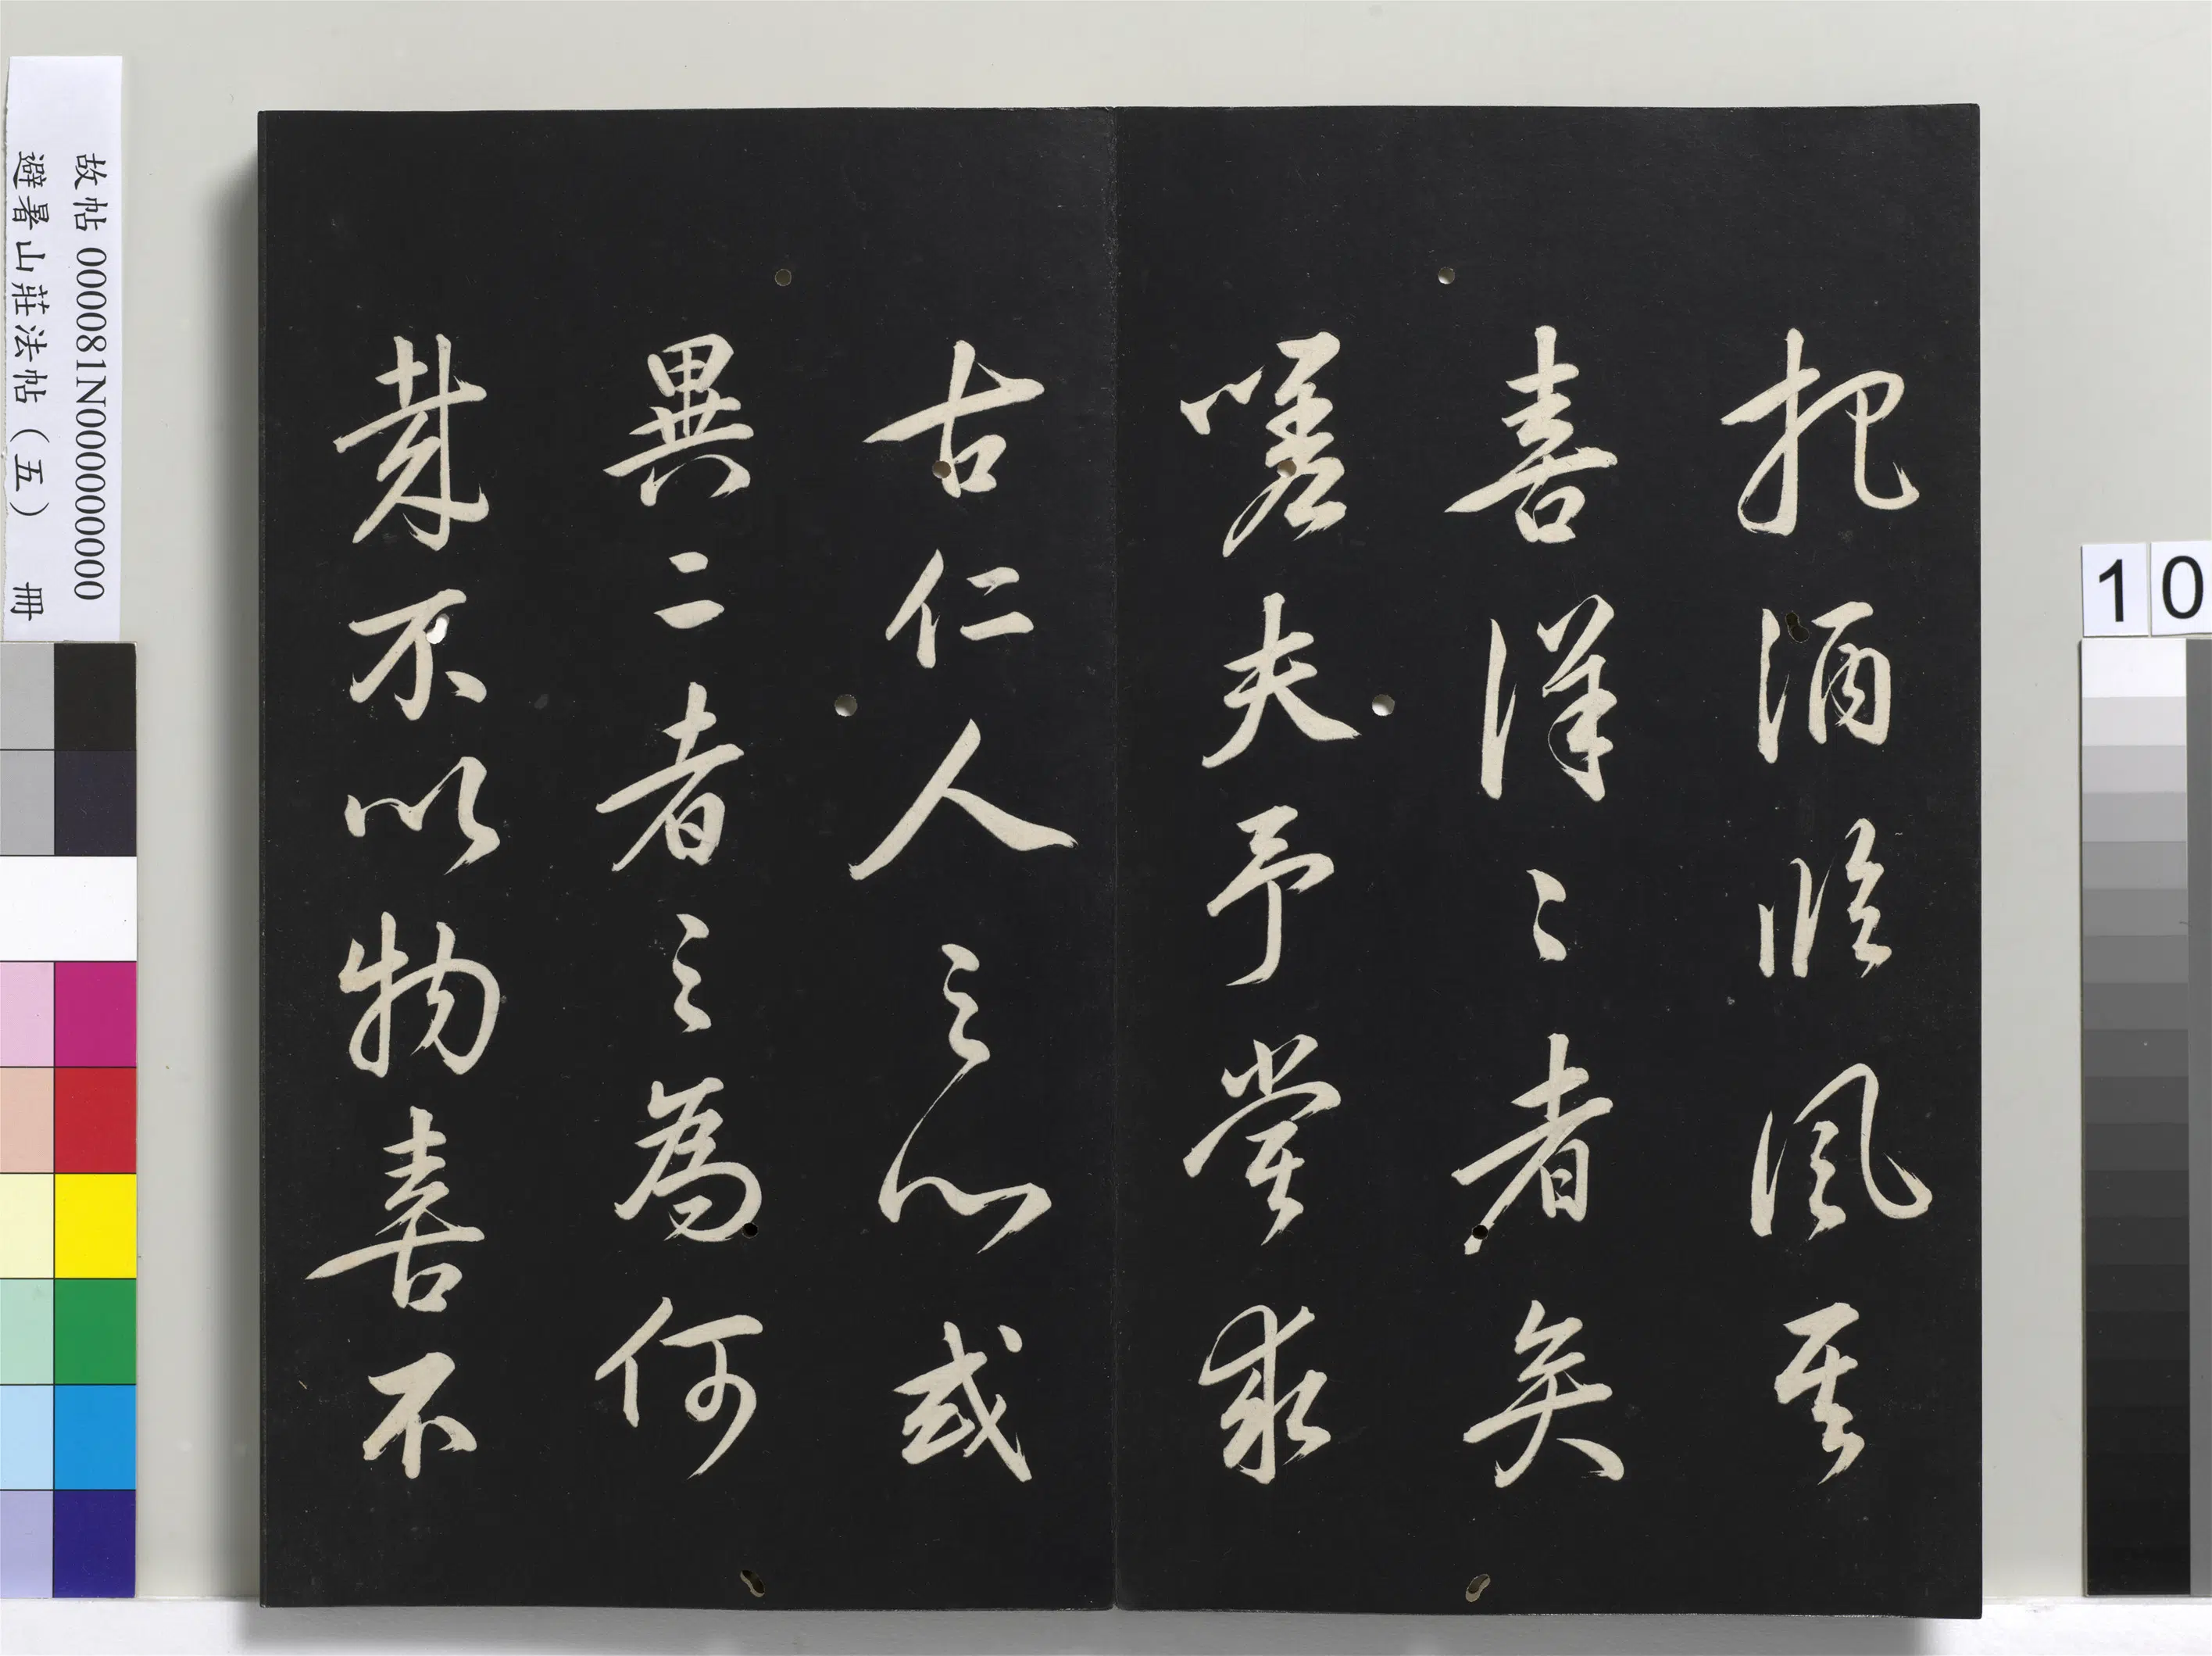 把酒臨風其
喜洋〻者矣
嗟夫予嘗求
古仁人之心或
異二者之為何
哉不以物喜不
故帖 000081N000000000
避暑山莊法帖(五) 冊
10